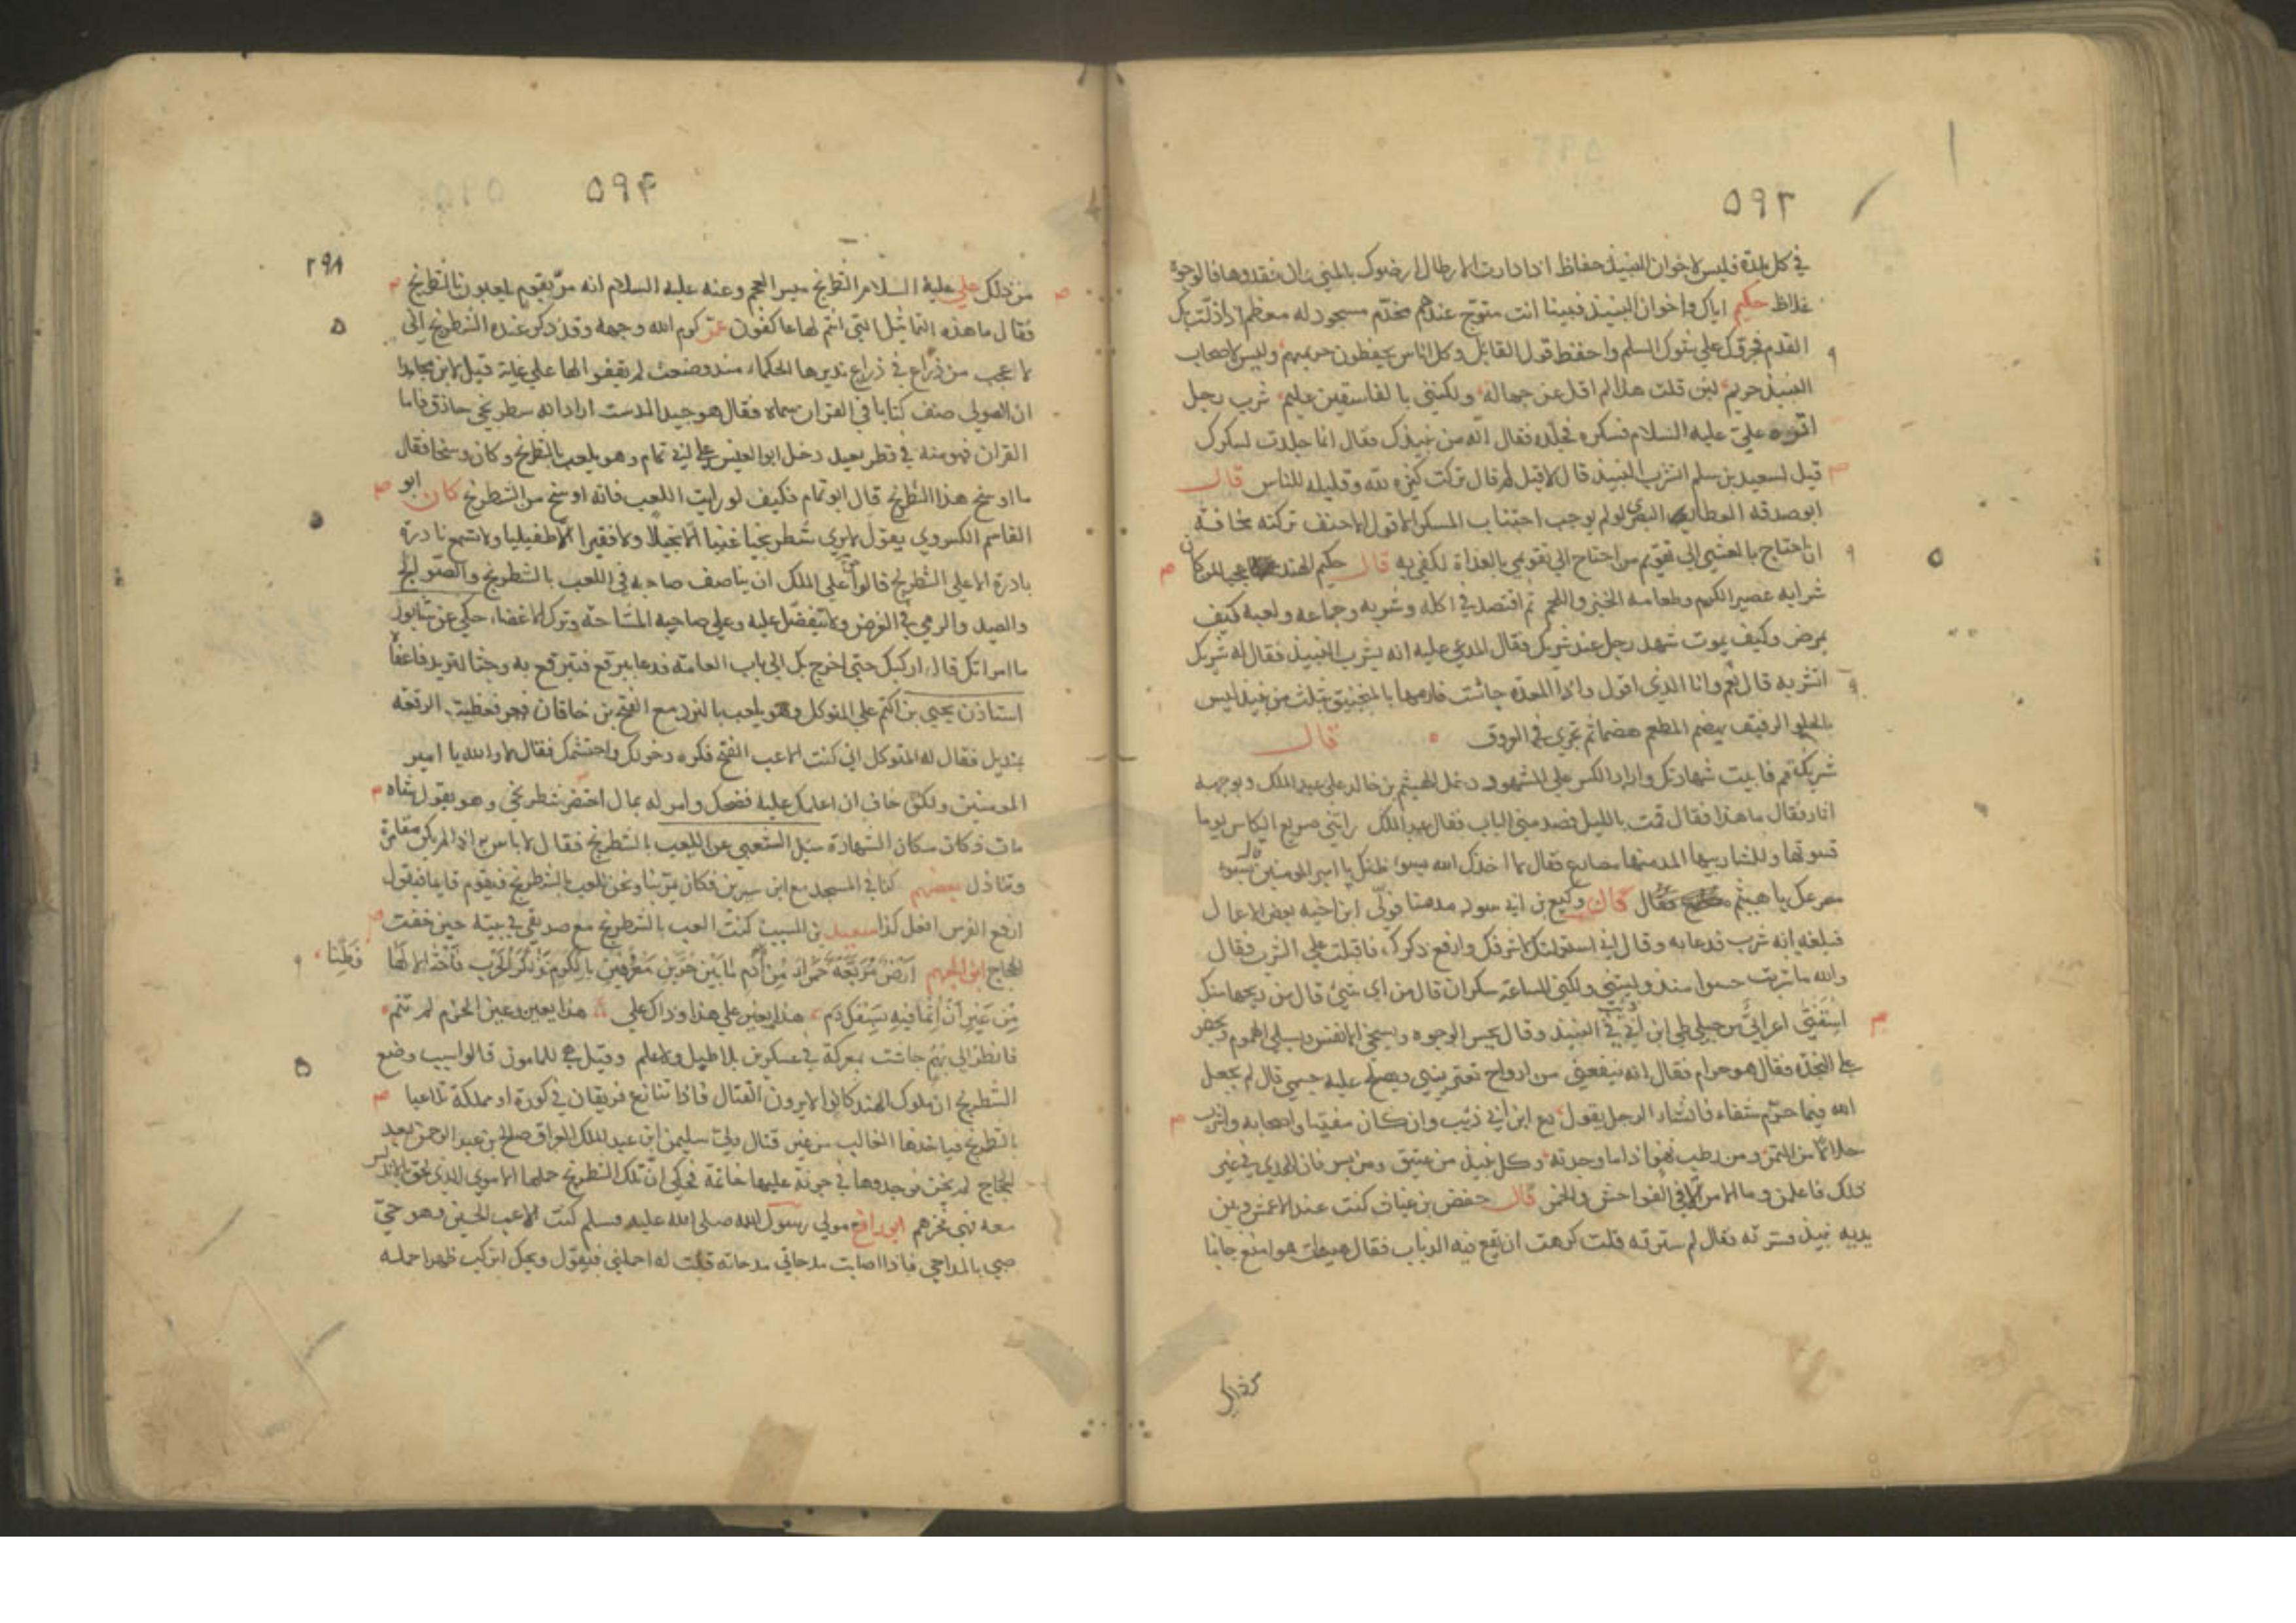 ٥٩٣
في كل بلدة فليس لاخوان النبيذ حفاظ اذا دارت الارطال ارضوك بالمنى وان فقدوها فالوجوه
غلاظ حكيم اياك واخوان النبيذ فبينا انت متوج عندهم مخدّم مسجود له معظم اذ زلّت بك
القدم فجروك على شوك السلم واحفظ قول القايل وكل اناس يحفظون حريمهم وليس لاصحاب
النبيذ حريم لئن قلت هذا لم اقل عن جهالة ولكنني بالفاسقين عليم شرب رجل
عليّ عليه السلام فسكر فجلده فقال انّه من نبيذك فقال انما جلدت لسكرك
قيل لسعيد بن سلم اتشرب النبيذ قال لا قيل لم قال تركت كثيره لله وقليله للناس قال
ابو صدقه البصري لو لم يوجب اجتناب المسكر الا قول الاحنف تركته مخافة
ان احتاج بالعشي الى تقويم من احتاج الى تقويمي بالغداة لكفى به قال حكيم الهند عجبا لمن كان
شرابه عصير الكرم وطعامه الخبز واللحم ثم اقتصد في اكله وشربه وجماعه ولعبه كيف
يمرض وكيف يموت شهد رجل عند شريك فقال المدعى عليه انه يشرب النبيذ فقال له شريك
اتشربه قال نعم وانا الذي اقول واذا المعدة جاشت فارمها بالمنجنيق بثلث من نبيذ ليس
بالحلو الرقيق يهضم المطعم هضما ثم يجري في العروق قال
شريك قم فاثبت شهادتك وازاد الكس على المشهود دخل الهيثم بن خالد على عبد الملك وبوجهه
اثار فقال ما هذا فقال قمت بالليل فصدمني الباب فقال عبد الملك رأتني صريع الكاس يوما
فسوتها وللشاربيها المدمنيها مصارع فقال لا اخذك الله بسوء ظنك يا امير المومنين قال بسوء
مصرعك يا هيثم فقال قال وكيع بن ابي سود فولّى ابن اخيه بعض الاعمال
فبلغه انه شرب فدعا به وقال اني استعملتك لاشرفك وارفع ذكرك فاقبلت على الشرب فقال
والله ما شربت ولكني الساعة سكران قال من اي شي قال من ريحها منك
استفتى اعرابي من جبلي طي ابن ابي ذئب في النبيذ وقال يحسن الوجوه ويسخي الانفس ويسلي الهموم ويحض
على النجدة فقال هو حرام فقال انه ينفعني من ارواح تعتريني ويصلح عليه جسمي قال لم يجعل
الله فيما حرم شفاء فانشاء الرجل يقول دع ابن ابي ذئب وان كان مفتيا واصحابه واشرب
حلالا من التمر ومن رطب نهوا اذا ما وجدته وكل نبيذ من عتيق ومن بسر فان الهدى في غير
ذلك فاعلمن وما الامر الا في الفواحش والخمر قال حفص بن غياث كنت عند الاعمش وبين
يديه نبيذ فسترته فقال لم سترته قلت كرهت ان يقع فيه الذباب فقال هيهات هو امنع جانبا
٥٩٤
٢٩٨
من ذلك علي عليه السلام الشطرنج ميسر العجم وعنه عليه السلام انه مرّ بقوم يلعبون بالشطرنج
فقال ما هذه التماثيل التي انتم لها عاكفون عمر كرم الله وجهه وقد ذكر عنده الشطرنج اني
لاعجب من ذراع في ذراع يديرها الحكماء منذ وضعت لم يقفوا لها على غاية قيل لابن مجاهد
ان الصولي صنف كتابا في القران سماه فقال هو جيد الدست اراد انه شطرنجي حاذق فاما
القران فهو منه في قطر بعيد دخل ابو العيس على ابي تمام وهو يلعب بالشطرنج وكان وسخا فقال
ما اوسخ هذا الشطرنج قال ابو تمام فكيف لو رايت اللعب فانه اوسخ من الشطرنج كان ابو
القاسم الكسروي يقول لا ترى شطرنجيا غنيا الا بخيلا ولا فقيرا الا طفيليا ولا تسمع نادرة
باردة الا على الشطرنج قالوا على الملك ان يناصف صاحبه في اللعب بالشطرنج والصوالج
والصيد والرمي في الغرض ولا يتفضل عليه وعلى صاحبه المشاحة وترك الاغضاء حكي عن شابور
ما امراتك قال اركبك حتى اخرج بك الى باب العامة فدعا ببرقع فتبرقع به وجثا لتربد فاعفا
استاذن يحيى بن اكثم على المتوكل وهو يلعب بالنرد مع الفتح بن خاقان فغطيت الرقعة
بمنديل فقال له المتوكل اني كنت الاعب الفتح فكره دخولك واحتشمك فقال لا والله يا امير
المومنين ولكن خاف ان اعلمك عليه فضحك وامر له بمال احتضر شطرنجي وهو يقول شاه
مات فكانت مكان الشهادة سئل الشعبي عن اللعب بالشطرنج فقال لا باس به اذا لم يكن مقامرة
بعضهم كنا في المسجد مع ابن سيرين فكان يمرّ بنا ونحن نلعب بالشطرنج فيقوم قايما فيقول
ارفع الفرس افعل كذا سعيد بن المسيب كنت العب بالشطرنج مع صديقي في بيته حين خفت
الحجاج ابن الجهم ارض مربعة حمراء من ادم ما بين حرّين معروفين بالكرم تذاكرا الحرب فاحتالا لها فطنا
من غير ان اثما فيه بسفك دم هذا يغير على هذا وذاك على هذا يغير وعين الحزم لم تنم
فانظر الى بهم جاشت بمعركة في عسكرين بلا طبل ولا علم وقيل هي للمامون قالوا سبب وضع
الشطرنج ان ملوك الهند كانوا لا يرون القتال فاذا تنازع فريقان في كورة او مملكة تلاعبا
بالشطرنج فياخذها الغالب من غير قتال ولّى سليمن ابن عبد الملك العراق صالح بن عبد الرحمن بعد
الحجاج فوجدوها في جونة عليها خاتمه فحكي انّ تلك الشطرنج حملها الاموي الذي لحق بالاندلس
معه فهي ابو رافع مولى رسول الله صلى الله عليه وسلم كنت الاعب الحسين وهو
صبي بالمداحي فاذا اصابت مدحاتي مدحاته قلت له احملني فيقول ويحك اتركب ظهرا حمله